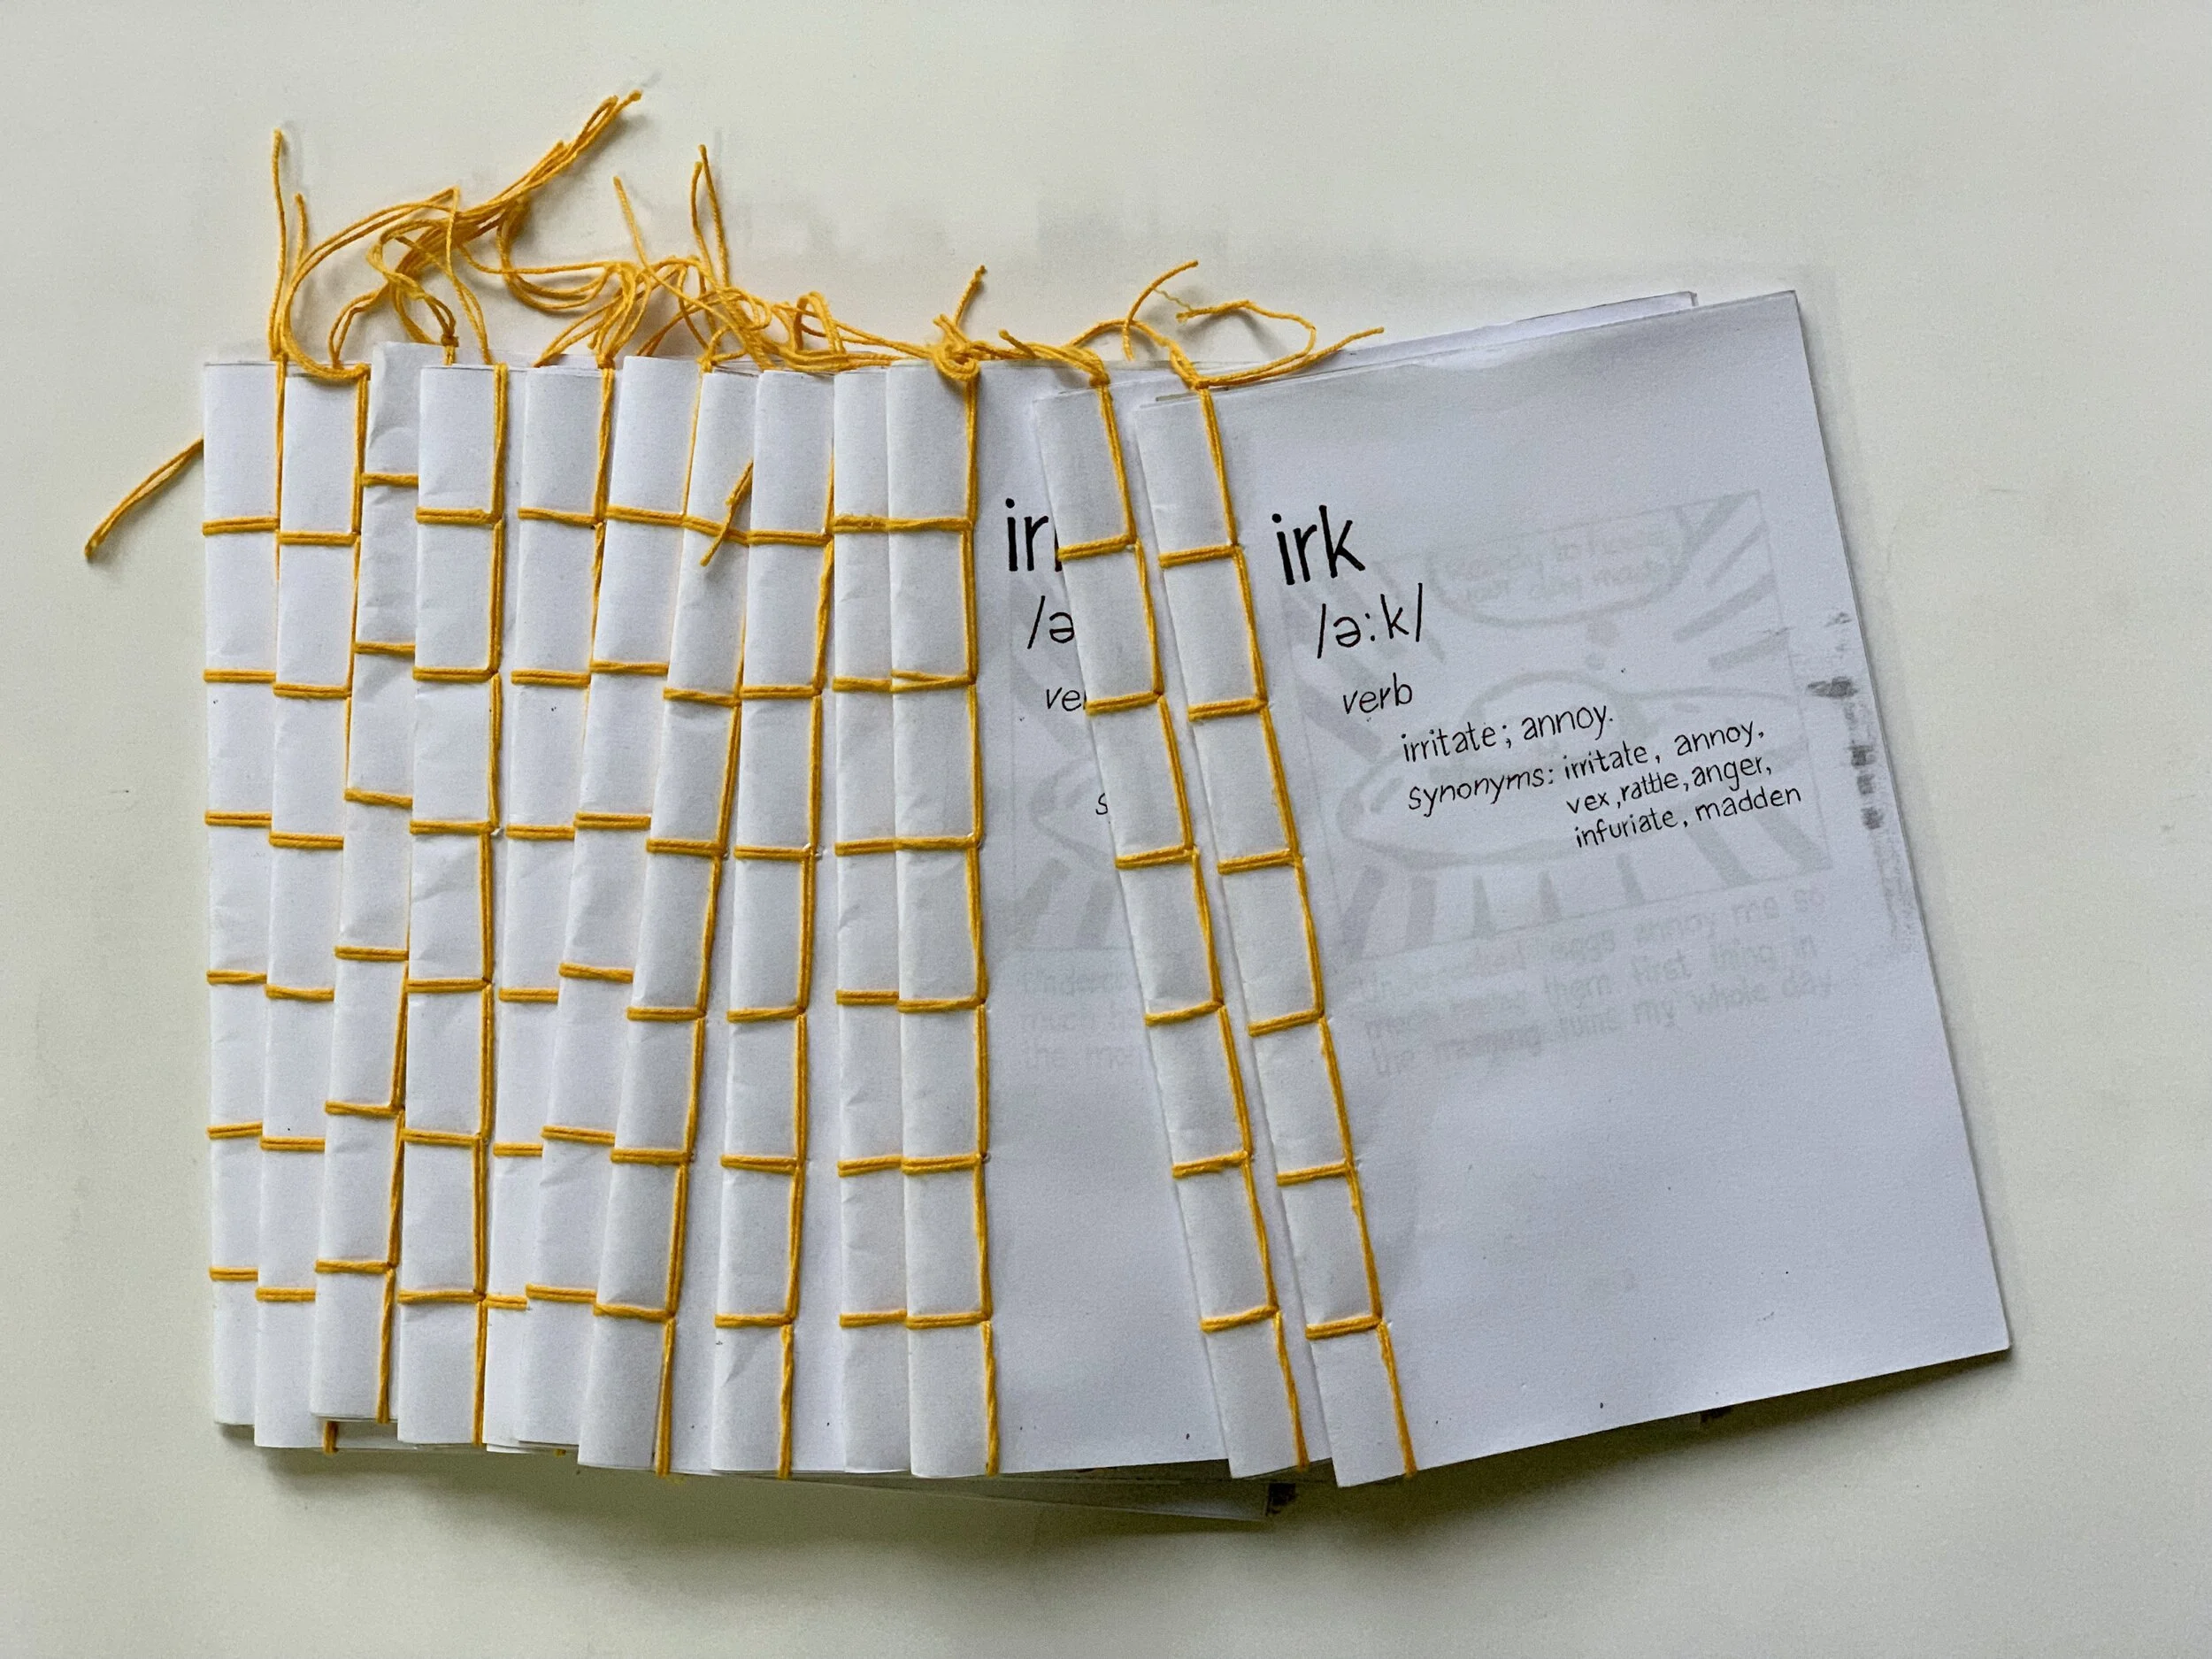 irk
/ə:k/
verb
irritate; annoy.
synonyms: irritate, annoy,
vex, rattle, anger,
infuriate, madden
Ready to have
your day made?
Undercooked eggs annoy me so
much having them first thing in
the morning ruins my whole day
ir
/ə
ve
s
Underc
much h
the mo